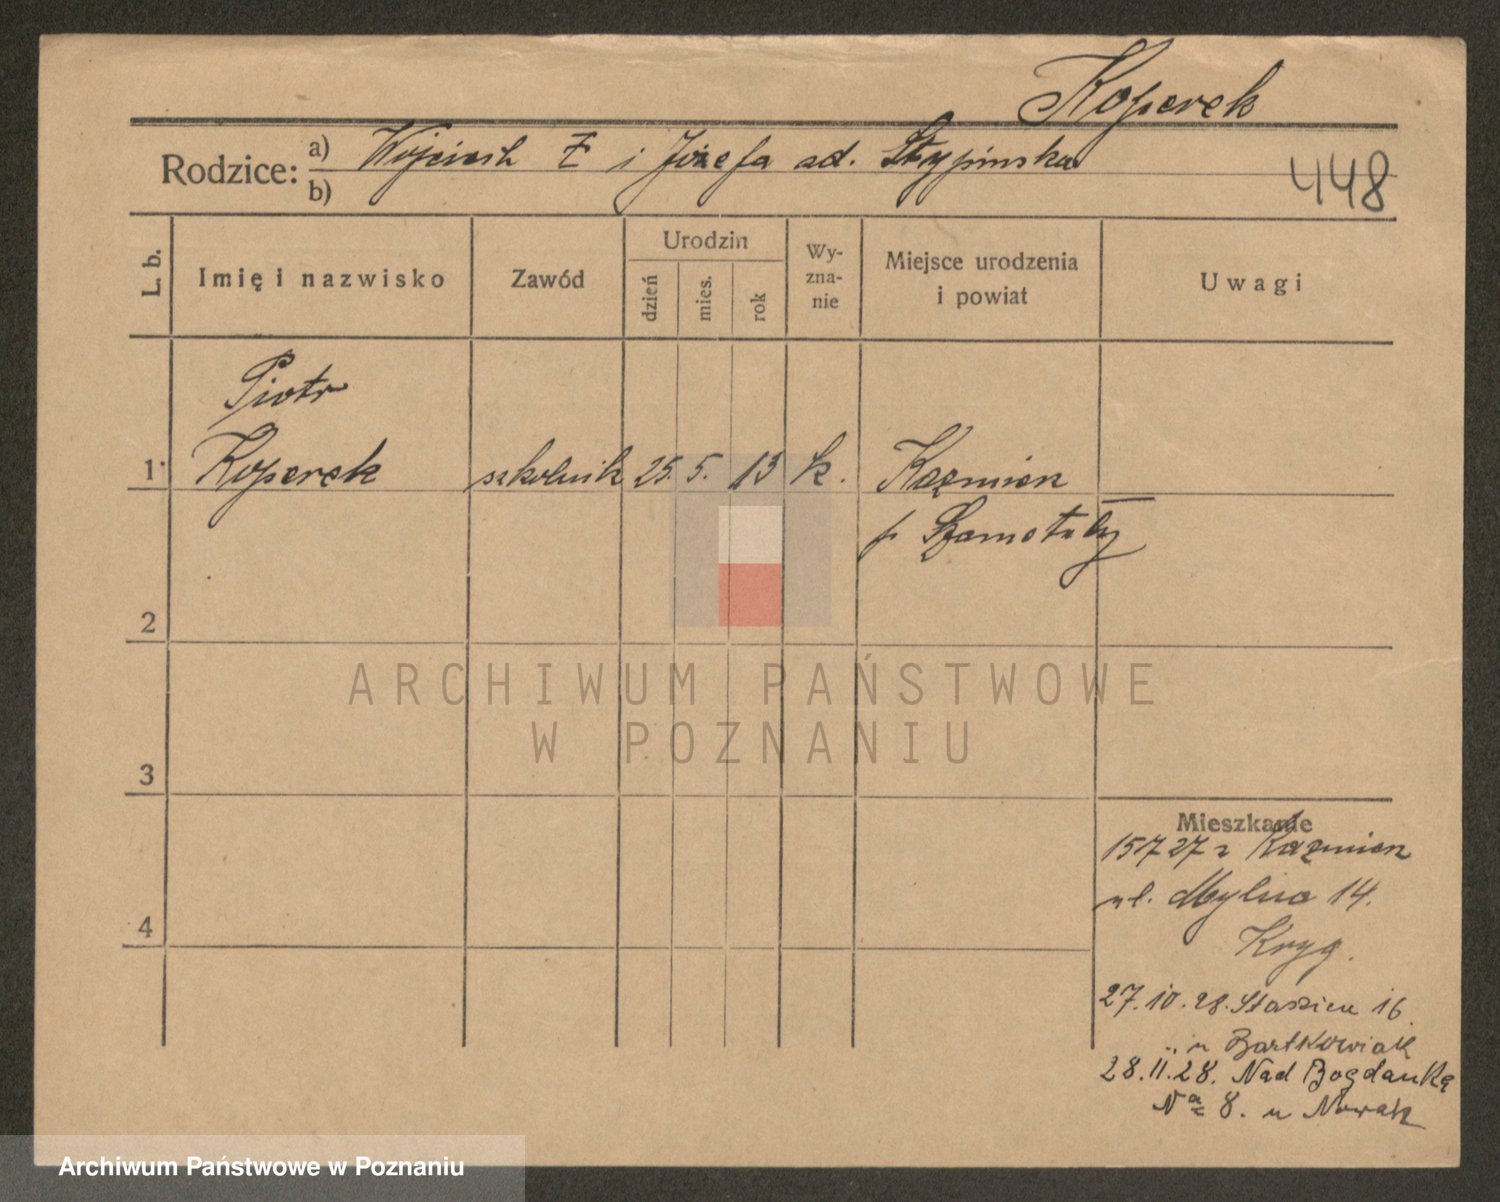 Koperek
Rodzice: a) Wojciech i Józefa
b)
448
L. b.
Imię i nazwisko
Zawód
Urodzin
dzień
mies.
rok
Wy-
zna-
nie
Miejsce urodzenia
i powiat
Uwagi
Piotr
1 Koperek szkolnik 25. 5. 13 k. Kazmierz
p Szamotuły
2
ARCHIWUM PAŃSTWOWE
W POZNANIU
3
Mieszkanie
15/7 27 z Kazmierz
ul. Młyńska 14.
4
27.10.28. Staszica 16
u Bartkowiak
28.11.28. Nad Bogdanką
Na 8. u Nowak
Archiwum Państwowe w Poznaniu